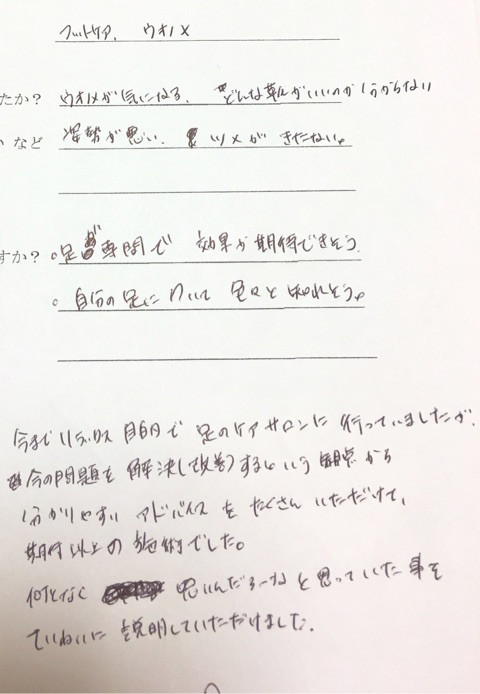 フットケア、 ウオノメ
たか? ウオノメが気になる。 どんな靴がいいのか分からない
、など 姿勢が悪い、 ツメが きたない。
すか? 。足専門で 効果が期待できそう。
。自分の足について 色々と知れそう。
今までリラックス目的で 足のケアサロンに 行っていましたが、
今の問題を 解決(改善)するという 観点から
分かりやすい アドバイスを たくさん いただけて、
期待以上の 施術でした。
何となく 悪いんだろーな と思っていた事を
ていねいに 説明していただけました。